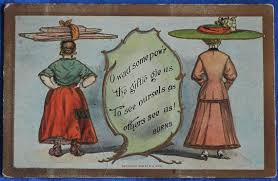 O wad some pow'r
the giftie gie us
To see oursels as
others see us!
BURNS